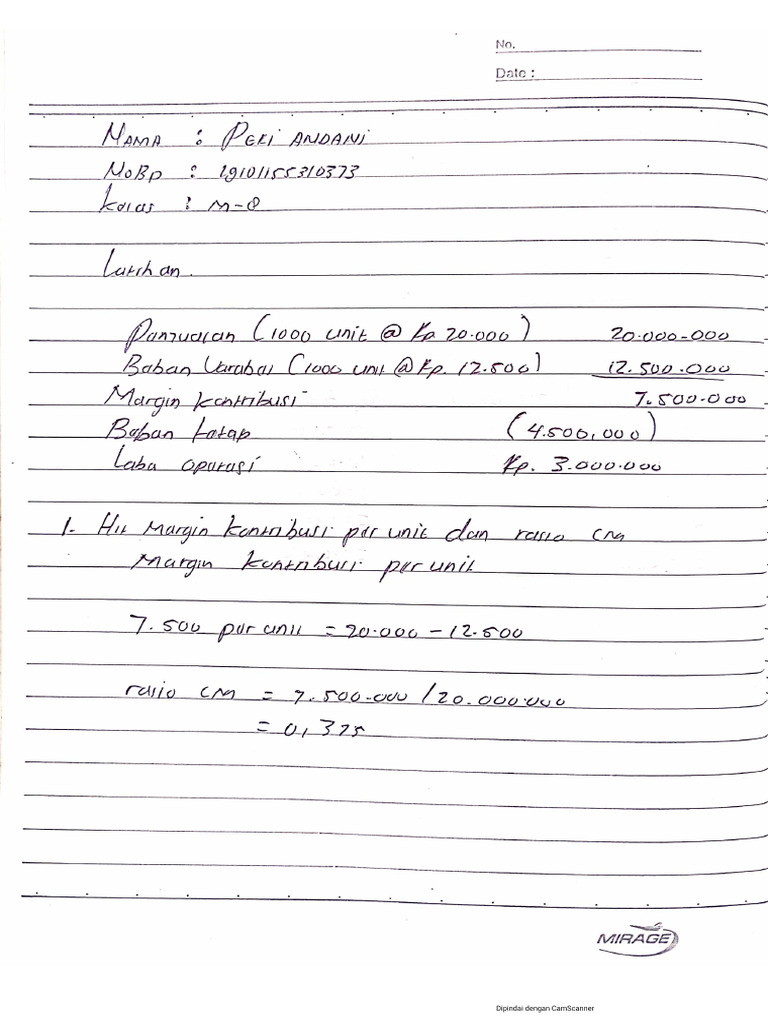 No.
Date :
Nama : Peki Andani
NoBp : 19101155310373
Kelas : M-8
Latihan.
Penjualan (1000 unit @ Rp 20.000) 20.000.000
Beban Variabel (1000 unit @ Rp. 12.500) 12.500.000
Margin kontribusi 7.500.000
Beban tetap (4.500,000)
Laba operasi Rp. 3.000.000
1. Hit Margin kontribusi per unit dan rasio CM
Margin kontribusi per unit
7.500 per unit = 20.000 - 12.500
rasio CM = 7.500.000 / 20.000.000
= 0,375
MIRAGE
Dipindai dengan CamScanner